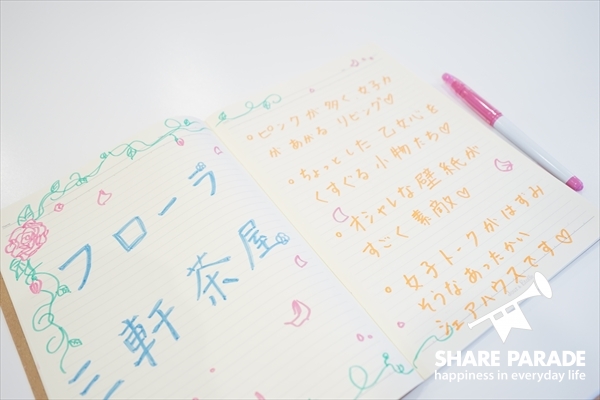 フローラ
三軒茶屋
・ピンクが多く女子力
があがるリビング♡
・ちょっとした乙女心を
くすぐる小物たち♡
・オシャレな壁紙が
すごく素敵♡
・女子トークがはずみ
そうなあったかい
シェアハウスです♡
SHARE PARADE
happiness in everyday life